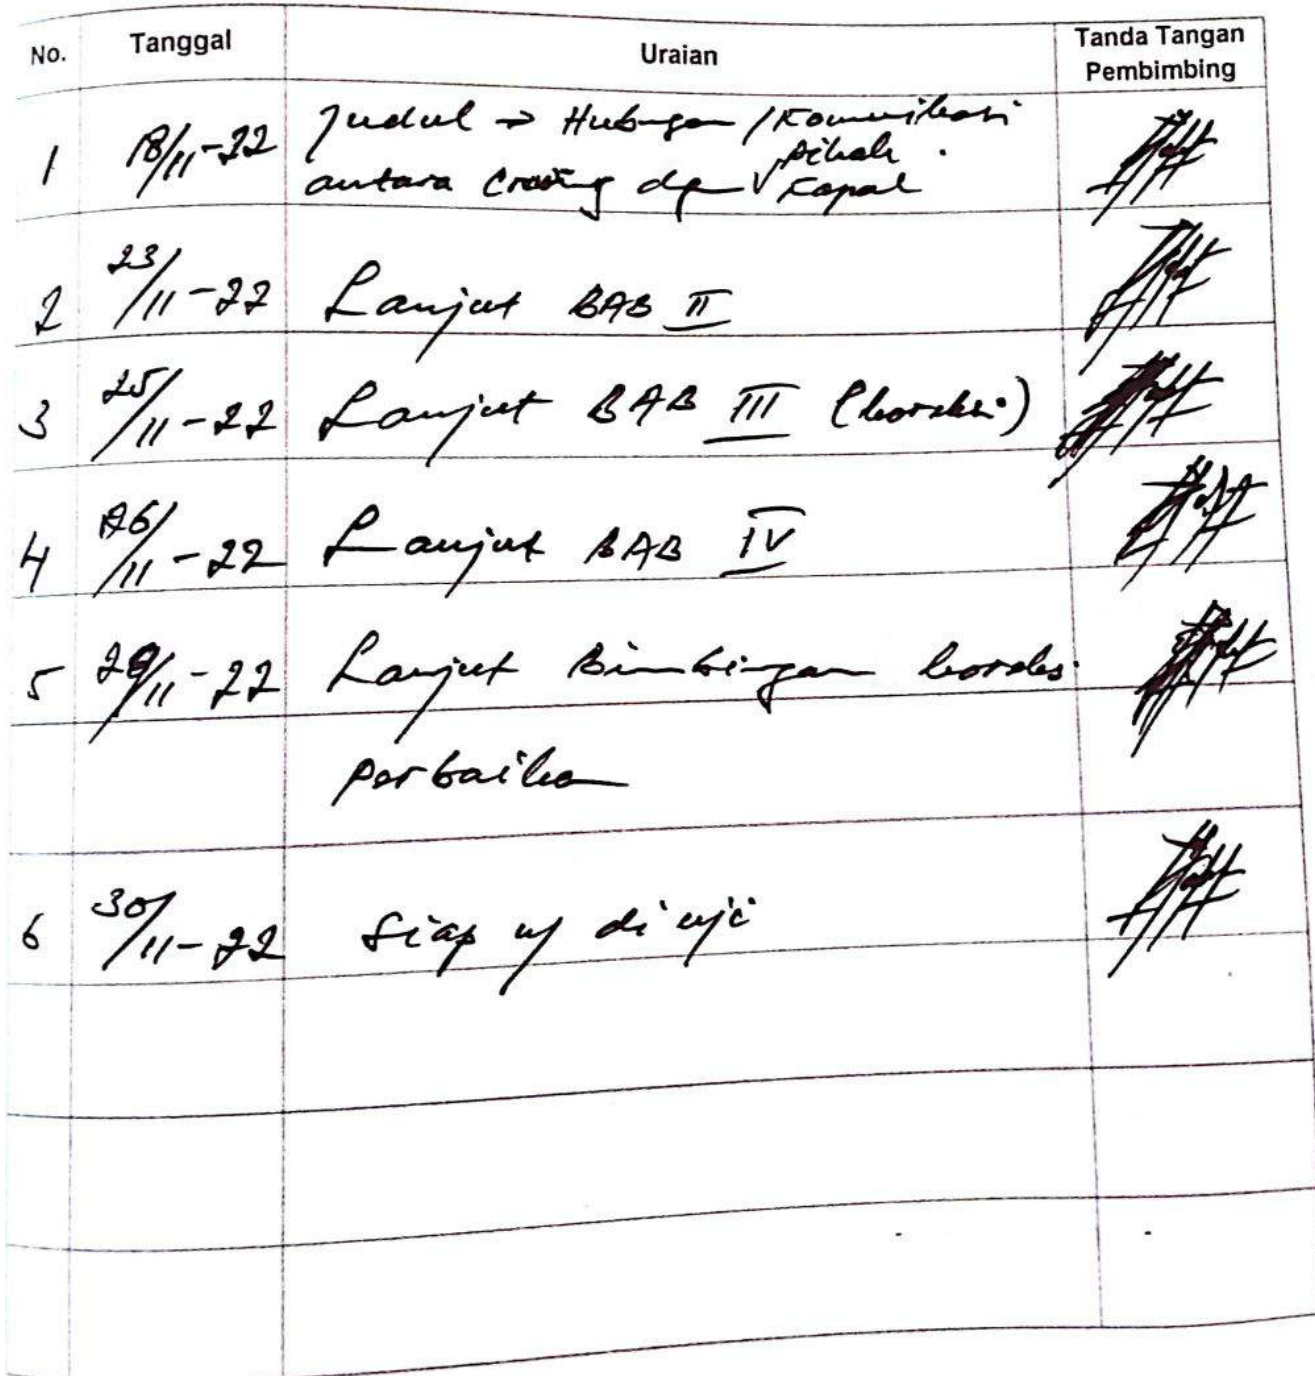 No. Tanggal Uraian Tanda Tangan
Pembimbing
1 18/11-22 Judul → Hubungan / Komunikasi
pihak
antara Crewing dgn √ Kapal
2 23/11-22 Lanjut BAB II
3 25/11-22 Lanjut BAB III (koreksi)
4 26/11-22 Lanjut BAB IV
5 29/11-22 Lanjut Bimbingan koreksi
perbaikan
6 30/11-22 Siap u/ di uji